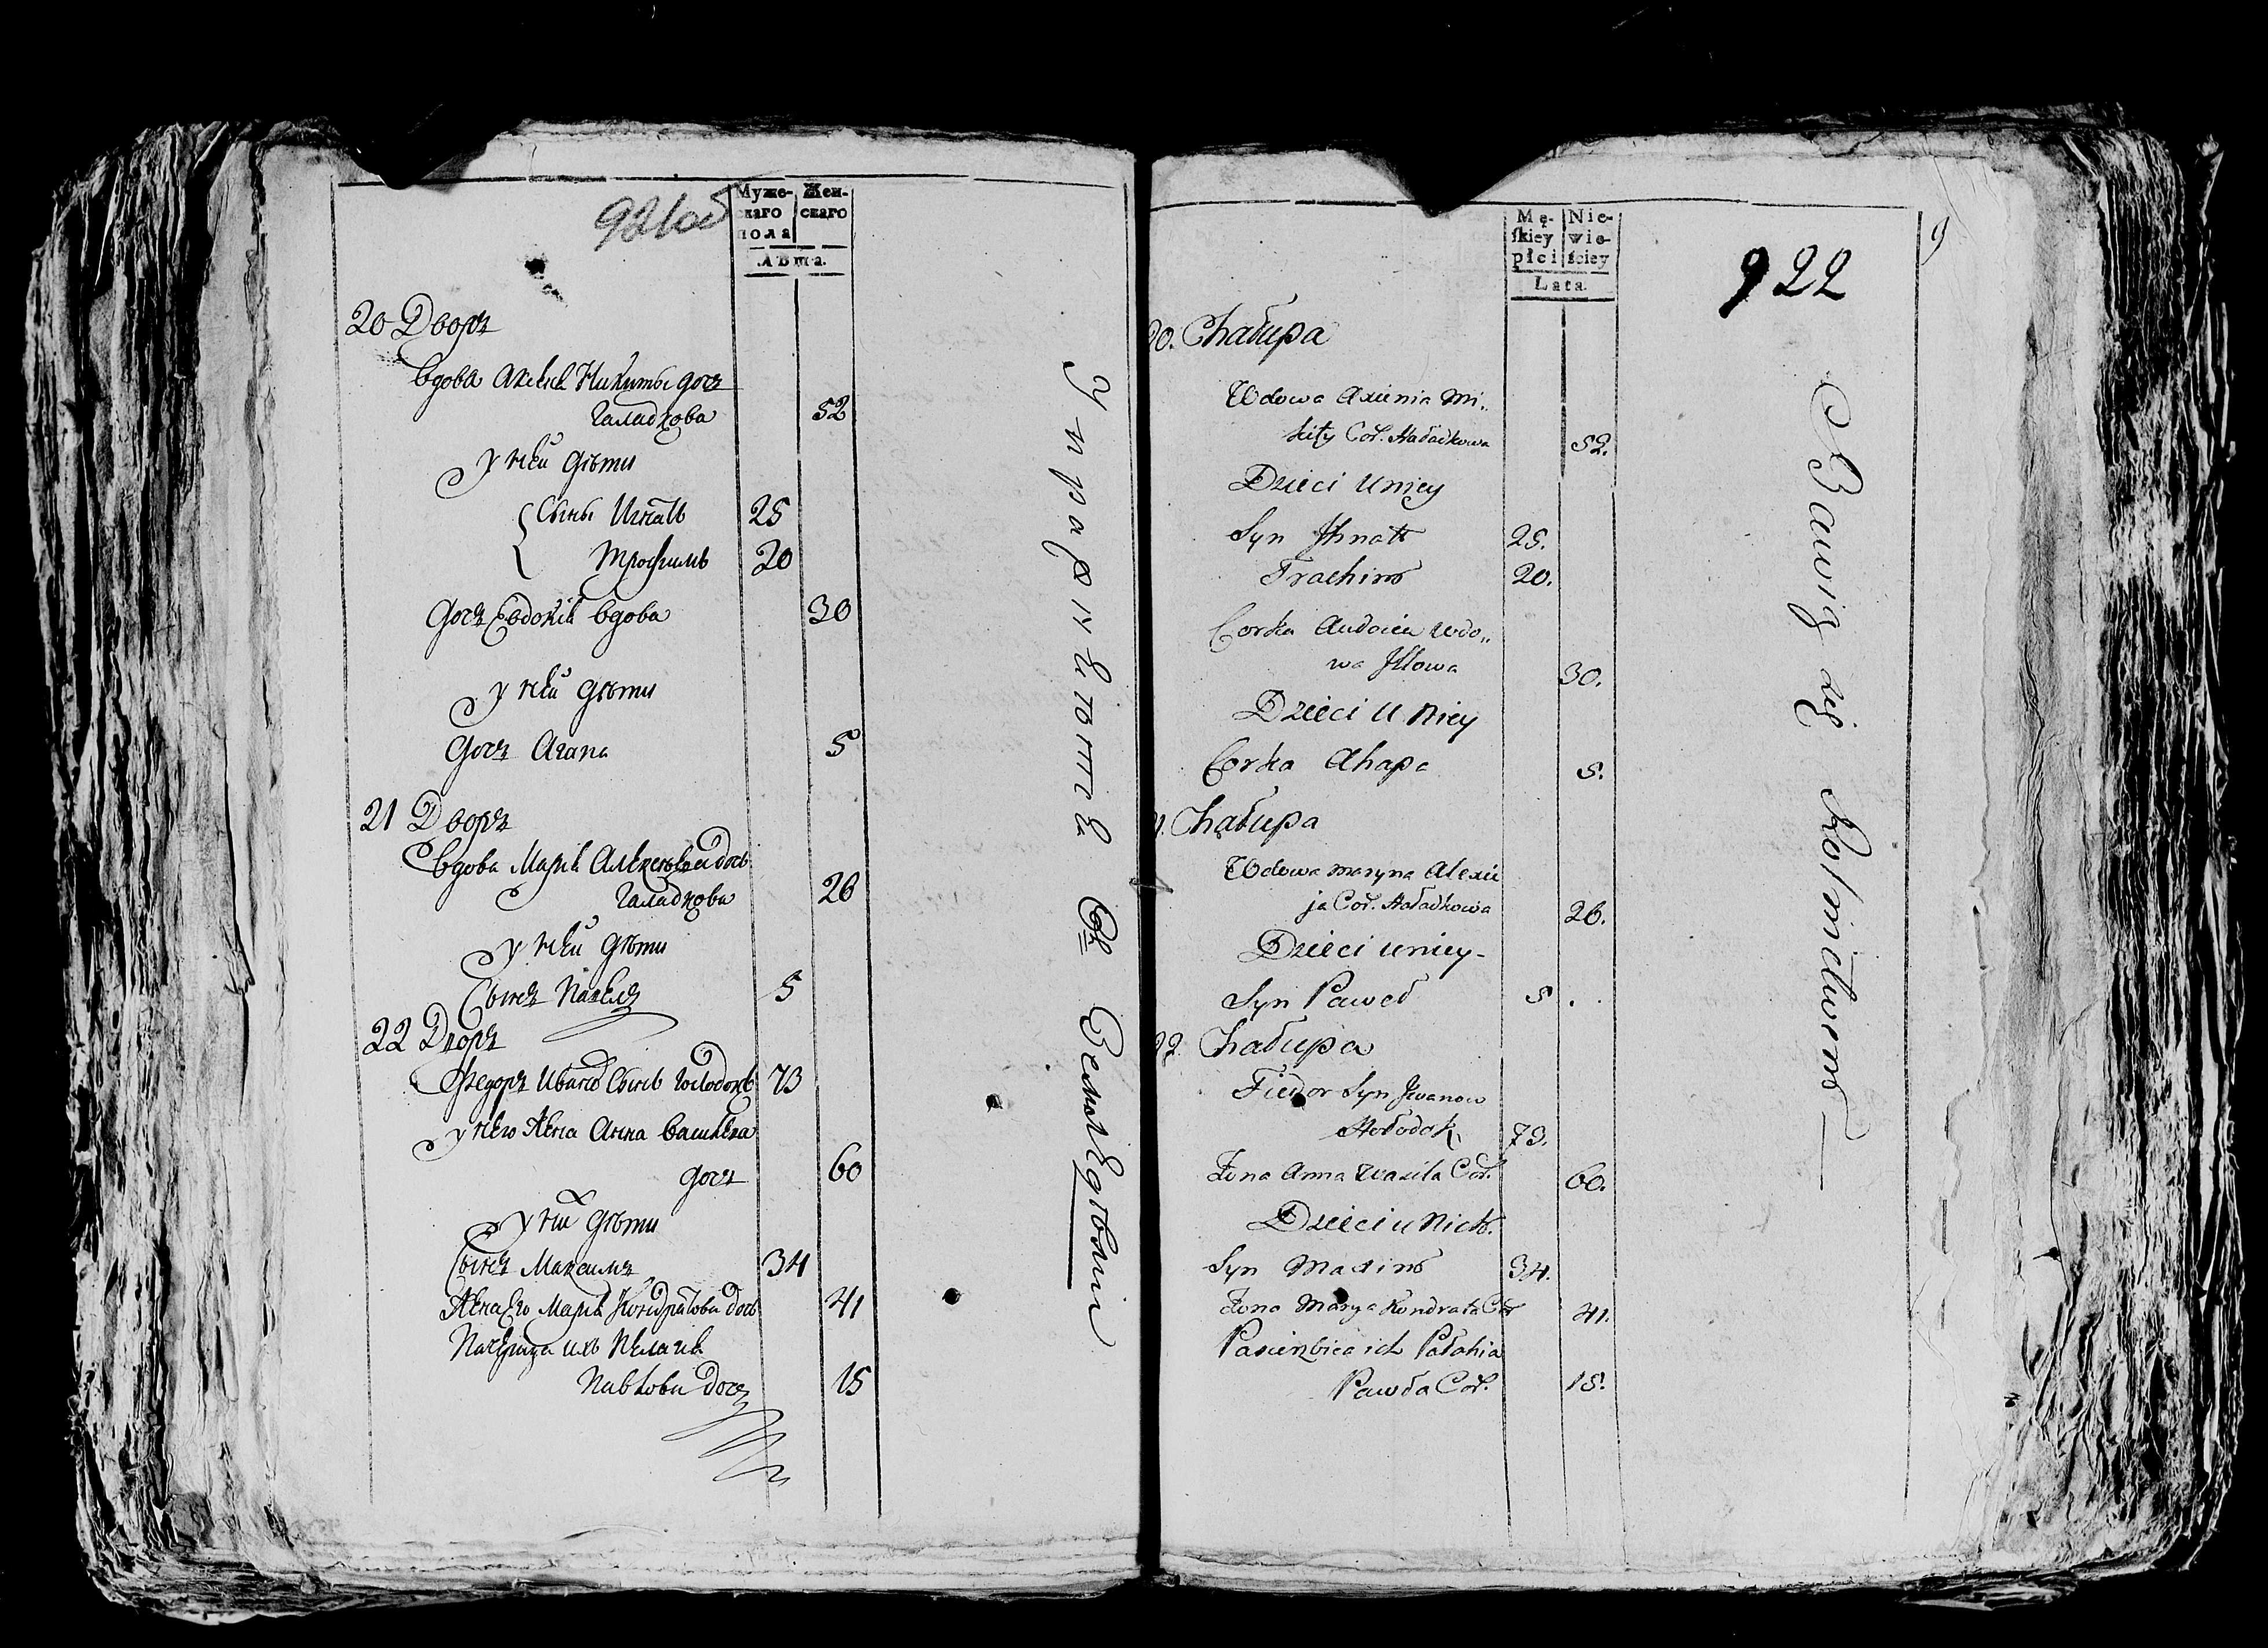 921об
Муже-
скаго
пола
Жен-
скаго
Лѣта.
20 Дворъ
Вдова Аксенѣ Никиты дочъ
Галадкова 52
у неи дѣти
Сынь Игнатъ 25
Трофимъ 20
дочъ Евдокіѣ вдова 30
у неи дѣти
дочъ Агапа 5
21 Дворъ
Вдова Маріѣ Алексѣева дочь
Галадкова 26
у неи дѣти
Сынъ Павелъ 5
22 Дворъ
Федоръ Иванов Сынъ Голодокъ 73
у него Жена Анна Васильева
дочъ 60
у них дѣти
Сынъ Максимъ 34
Жена Его Маріѣ Кондратова дочь 41
Пачерица ихъ Пелагіѣ
Павлова дочъ 15
Упражнѣютъѣ Сѣ Земледѣлии
Mę-
skiey
płci
Nie-
wie-
ściey
Lata.
922
9
20. Chałupa
Wdowa Axienia Mi„
kity Coŕ. Haładkowa 52.
Dzieci u niey
Syn Jhnat 25.
Trachim 20.
Corka Audocia wdo„
wa Jłłowa 30.
Dzieci u Niey
Corka Ahapa 5.
1. Chałupa
Wdowa Maryna Alexie
ja Coŕ. Haładkowa 26.
Dzieci u niey-
Syn Paweł 5.
22. Chałupa
Fiedor Syn Jwanow
Hołodok 73.
Żona Anna Wasila Coŕ. 60.
Dzieci u Nich.
Syn Maxim 34.
Żona Marya Kondrata Coŕ 41.
Pasierbica ich Pałahia
Pawła Coŕ. 15.
Bawią się Rolnictwem—